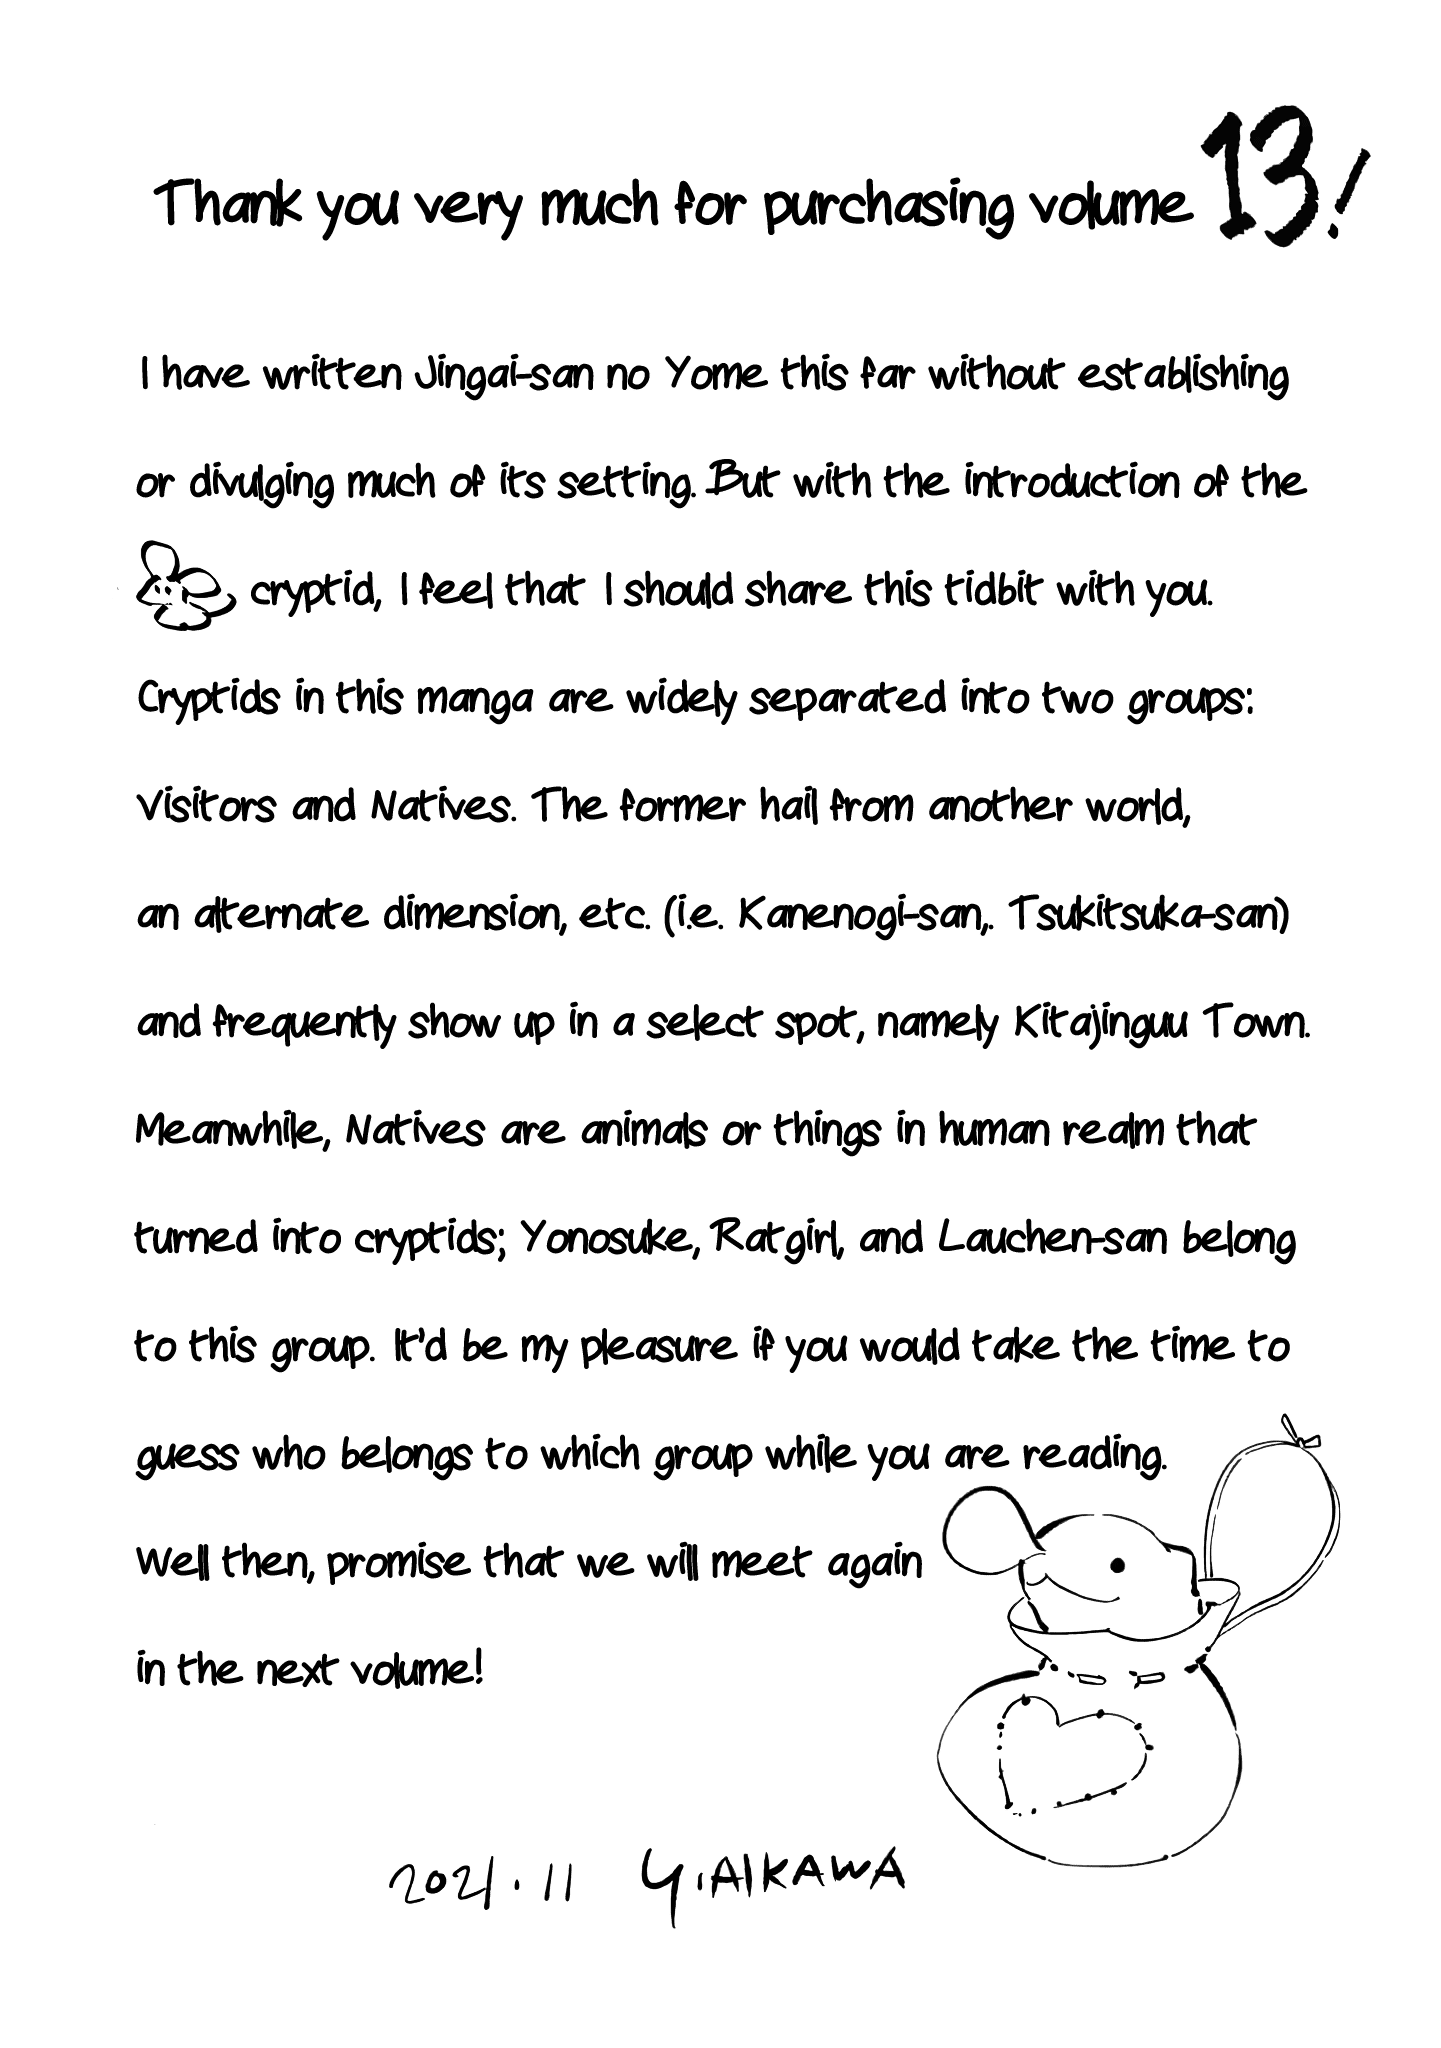 Thank you very much for purchasing volume 13!
I have written Jingai-san no Yome this far without establishing
or divulging much of its setting. But with the introduction of the
cryptid, I feel that I should share this tidbit with you.
Cryptids in this manga are widely separated into two groups:
Visitors and Natives. The former hail from another world,
an alternate dimension, etc. (i.e. Kanenogi-san,. Tsukitsuka-san)
and frequently show up in a select spot, namely Kitajinguu Town.
Meanwhile, Natives are animals or things in human realm that
turned into cryptids; Yonosuke, Ratgirl, and Lauchen-san belong
to this group. It'd be my pleasure if you would take the time to
guess who belongs to which group while you are reading.
Well then, promise that we will meet again
in the next volume!
2021.11 Y.AIKAWA